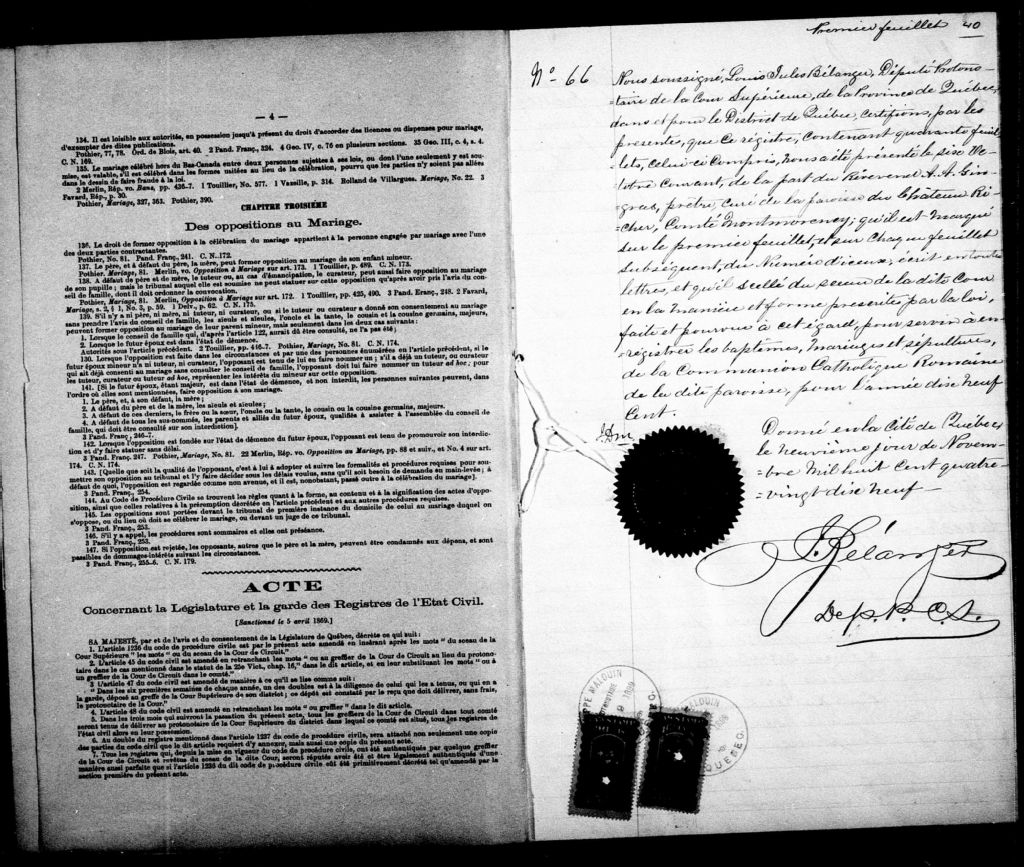 — 4 —
134. Il est loisible aux autorités, en possession jusqu'à présent du droit d'accorder des licences ou dispenses pour mariage,
d'exempter des dites publications.
Pothier, 77, 78. Ord. de Blois, art. 40. 2 Pand. Franç., 324. 4 Geo. IV, c. 76 en plusieurs sections. 35 Geo. III, c. 4, s. 4.
C. N. 169.
135. Le mariage célébré hors du Bas-Canada entre deux personnes sujettes à ses lois, ou dont l'une seulement y est sou-
mise, est valable, s'il est célébré dans les formes usitées au lieu de la célébration, pourvu que les parties n'y soient pas allées
dans le dessein de faire fraude à la loi.
2 Merlin, Rép. vo. Bans, pp. 436-7. 1 Touillier, No. 577. 1 Vazille, p. 314. Rolland de Villargues. Mariage, No. 22. 3
Favard, Rép., p. 30.
Pothier, Mariage, 327, 363. Pothier, 390.
CHAPITRE TROISIÈME
Des oppositions au Mariage.
136. Le droit de former opposition à la célébration du mariage appartient à la personne engagée par mariage avec l'une
des deux parties contractantes.
Pothier, No. 81. Pand. Franç., 241. C. N. 172.
137. Le père, et à défaut du père, la mère, peut former opposition au mariage de son enfant mineur.
Pothier, Mariage, 81. Merlin, vo. Opposition à Mariage sur art. 173. 1 Touillier, p. 490. C. N. 173.
138. A défaut de père et de mère, le tuteur ou, au cas d'émancipation, le curateur, peut aussi faire opposition au mariage
de son pupille; mais le tribunal auquel elle est soumise ne peut statuer sur cette opposition qu'après avoir pris l'avis du con-
seil de famille, dont il doit ordonner la convocation.
Pothier, Mariage, 81. Merlin, Opposition à Mariage sur art. 172. 1 Touillier, pp. 425, 490. 3 Pand. Franç., 248. 2 Favard,
Mariage, s. 2, § 1, No. 3, p. 59. 1 Delv., p. 62. C. N. 175.
139. S'il n'y a ni père, ni mère, ni tuteur, ni curateur, ou si le tuteur ou curateur a donné son consentement au mariage
sans prendre l'avis du conseil de famille, les aïeuls et aïeules, l'oncle et la tante, le cousin et la cousine germains, majeurs,
peuvent former opposition au mariage de leur parent mineur, mais seulement dans les deux cas suivants:
1. Lorsque le conseil de famille qui, d'après l'article 122, aurait dû être consulté, ne l'a pas été;
2. Lorsque le futur époux est dans l'état de démence.
Autorités sous l'article précédent. 2 Touillier, pp. 446-7. Pothier, Mariage, No. 81. C. N. 174.
130. Lorsque l'opposition est faite dans les circonstances et par une des personnes énumérées en l'article précédent, si le
futur époux mineur n'a ni tuteur, ni curateur, l'opposant est tenu de lui en faire nommer un; s'il a déjà un tuteur, ou curateur
qui ait déjà consenti au mariage sans consulter le conseil de famille, l'opposant doit lui faire nommer un tuteur ad hoc; pour
les tuteur, curateur ou tuteur ad hoc, représenter les intérêts du mineur sur cette opposition.
141. [Si le futur époux, étant majeur, est dans l'état de démence, et non interdit, les personnes suivantes peuvent, dans
l'ordre où elles sont mentionnées, faire opposition à son mariage.
1. Le père, et, à son défaut, la mère;
2. A défaut du père et de la mère, les aïeuls et aïeules;
3. A défaut de ces derniers, le frère ou la sœur, l'oncle ou la tante, le cousin ou la cousine germains, majeurs.
4. A défaut de tous les sus-nommés, les parents et alliés du futur époux, qualifiés à assister à l'assemblée du conseil de
famille, qui doit être consulté sur son interdiction].
3 Pand. Franç., 246-7.
142. Lorsque l'opposition est fondée sur l'état de démence du futur époux, l'opposant est tenu de promouvoir son interdic-
tion et d'y faire statuer sans délai.
3 Pand. Franç. 247. Pothier, Mariage, No. 81. 22 Merlin, Rép. vo. Opposition au Mariage, pp. 88 et suiv., et No. 4 sur art.
174. C. N. 174.
143. [Quelle que soit la qualité de l'opposant, c'est à lui à adopter et suivre les formalités et procédures requises pour sou-
mettre son opposition au tribunal et l'y faire décider sous les délais voulus, sans qu'il soit besoin de demande en main-levée; à
défaut de quoi, l'opposition est regardée comme non avenue, et il est, nonobstant, passé outre à la célébration du mariage].
3 Pand. Franç., 254.
144. Au Code de Procédure Civile se trouvent les règles quant à la forme, au contenu et à la signification des actes d'oppo-
sition, ainsi que celles relatives à la péremption décrétée en l'article précédent et aux autres procédures requises.
145. Les oppositions sont portées devant le tribunal de première instance du domicile de celui au mariage duquel on
s'oppose, ou du lieu où doit se célébrer le mariage, ou devant un juge de ce tribunal.
3 Pand. Franç., 253.
146. S'il y a appel, les procédures sont sommaires et elles ont préséance.
3 Pand. Franç., 253.
147. Si l'opposition est rejetée, les opposants, autres que le père et la mère, peuvent être condamnés aux dépens, et sont
passibles de dommages-intérêts suivant les circonstances.
3 Pand. Franç., 255-6. C. N. 179.
ACTE
Concernant la Législature et la garde des Registres de l'Etat Civil.
[Sanctionné le 5 avril 1869.]
SA MAJESTÉ, par et de l'avis et du consentement de la Législature de Québec, décrète ce qui suit:
1. L'article 1236 du code de procédure civile est par le présent acte amendé en insérant après les mots " du sceau de la
Cour Supérieure " les mots " ou du sceau de la Cour de Circuit."
2. L'article 45 du code civil est amendé en retranchant les mots " ou au greffier de la Cour de Circuit au lieu du protono-
taire dans le cas mentionné dans le statut de la 25e Vict., chap. 16," dans le dit article, et en leur substituant les mots " ou à
un greffier de la Cour de Circuit dans le comté."
3 L'article 47 du code civil est amendé de manière à ce qu'il se lise comme suit:
" Dans les six premières semaines de chaque année, un des doubles est à la diligence de celui qui les a tenus, ou qui en a
la garde, déposé au greffe de la Cour Supérieure de son district; ce dépôt est constaté par le reçu que doit délivrer, sans frais,
le protonotaire de la Cour."
4. L'article 48 du code civil est amendé en retranchant les mots " ou greffier " dans le dit article.
5. Dans les trois mois qui suivront la passation du présent acte, tous les greffiers de la Cour de Circuit dans tout comté
seront tenus de délivrer au protonotaire de la Cour Supérieure du district dans lequel ce comté est situé, tous les registres de
l'état civil alors en leur possession.
6. Au double du registre mentionné dans l'article 1237 du code de procédure civile, sera attaché non seulement une copie
des parties du code civil que le dit article requiert d'y annexer, mais aussi une copie du présent acte.
7. Tous les registres qui, depuis la mise en vigueur du code de procédure civile, ont été authentiqués par quelque greffier
de la Cour de Circuit et revêtus du sceau de la dite Cour, seront réputés avoir été et être légalement authentiqués d'une
manière aussi parfaite que si l'article 1236 du dit code de procédure civile eût été primitivement décrété tel qu'amendé par la
section première du présent acte.
Premier feuillet 40
No 66
Nous soussigné, Louis Jules Bélanger, Député Protono-
=taire de la Cour Supérieure, de la Province de Québec,
dans et pour le District de Québec, certifions, par les
présentes, que ce régistre, contenant quarante feuil-
lets, celui-ci compris, nous a été présenté le six Oc-
tobre courant, de la part du Réverend A. A. Gin-
=gras, prêtre, curé de la paroisse du Château Ri-
=cher, Comté Montmorency; qu'il est marqué
sur le premier feuillet, et sur chaque feuillet
subséquent, du Numéro d'iceux, écrit en toutes
lettres, et qu'il scellé du sceau de la dite Cour
en la manière et forme prescrites par la loi,
faite et pourvue à cet égard, pour servir à en-
=régistrer les baptêmes, Mariages et sépultures,
de la Communion Catholique Romaine
de la dite paroisse, pour l'année dix neuf
Cent.
Donné en la Cité de Québec,
le neuvième jour de Novem-
=bre Mil huit Cent quatre-
=vingt dix neuf —
J. Bélanger
Dep. P. C. S.
QUEBEC